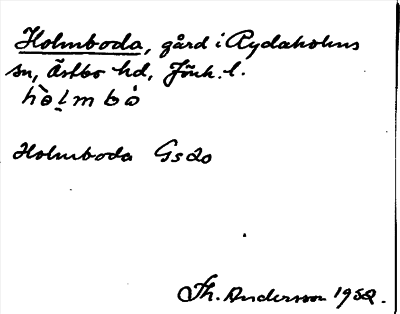 Holmboda, gård i Rydaholms
sn, Östbo hd, Jönk. l.
Holmboda Gsdo
Th. Andersson 1952.